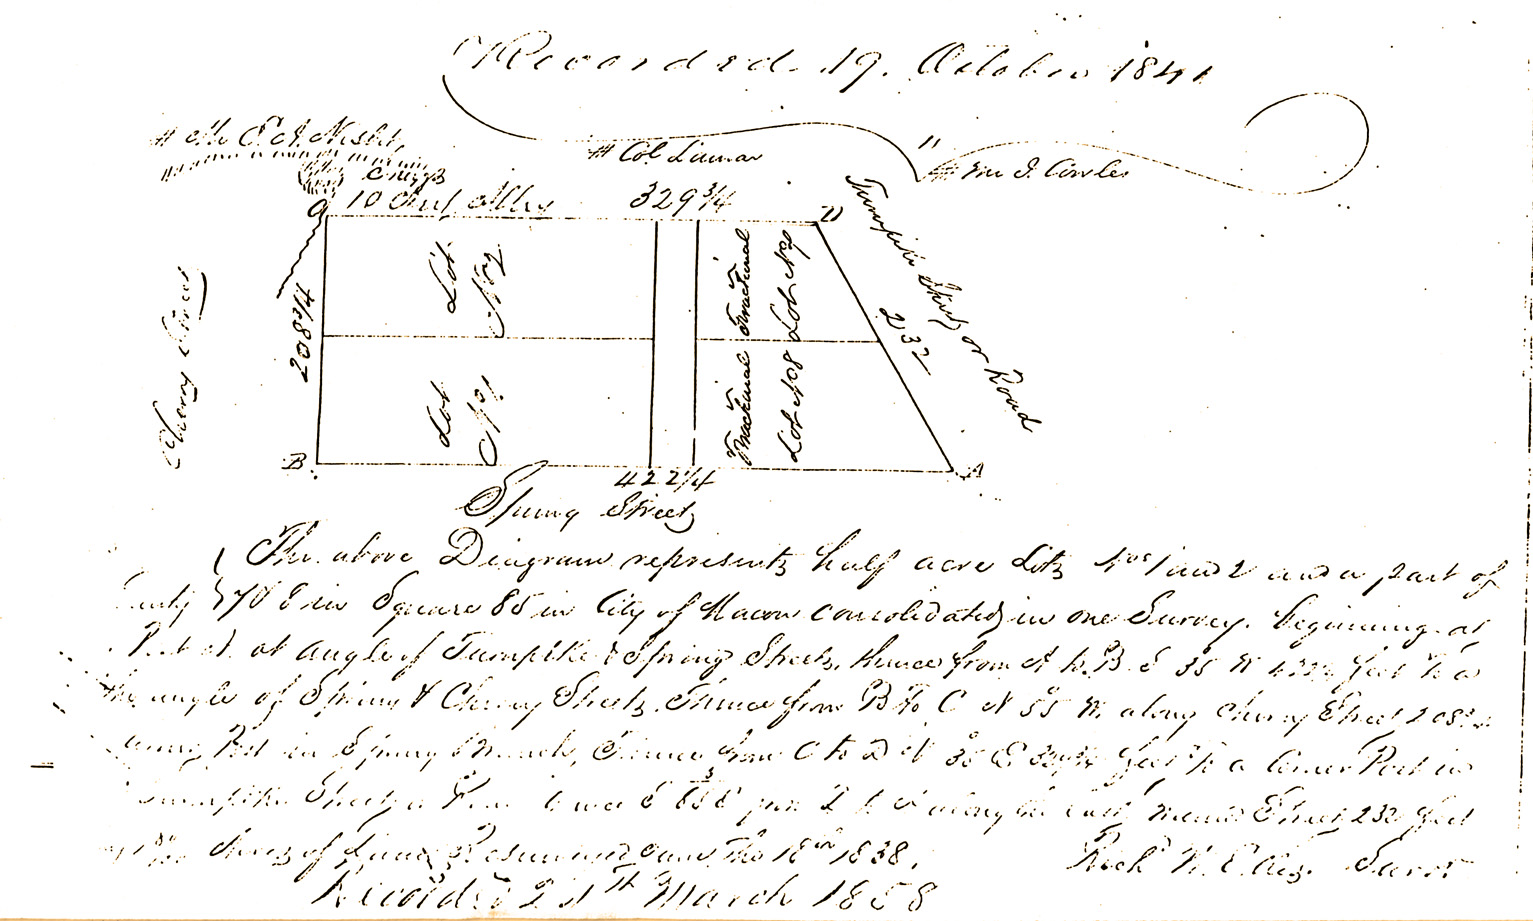 Recorded 19. October 1841
# Mr E. A. Nisbet,
# Col Lumar
# Mr J. Cowles
10 feet Alley
329 3/4
D
Turnpike Street or Road
Cherry Street
208 3/4
Lot No 2
Fractional Lot No 7
232
Lot No 1
Fractional Lot No 8
B
422 1/4
A
Spring Street
The above Diagram represents half acre Lots Nos 1 and 2 and a part of
7 & 8 in Square 85 in City of Macon consolidated in one Survey. beginning at
Post A. at angle of Turnpike & Spring Streets, thence from A to B. S 35 W 422 1/4 feet to a
the angle of Spring & Cherry Streets. Thence from B to C N 55 W. along Cherry Street 208 3/4
Post in Spring Branch, Thence from C to D N 35 E 329 3/4 feet to a Corner Post in
Turnpike Street thence S from D to A along the last named Street 232 feet
of Land Resurveyed June the 18th 1838.
Richd W. Ellis. Survr
Recorded 24th March 1858